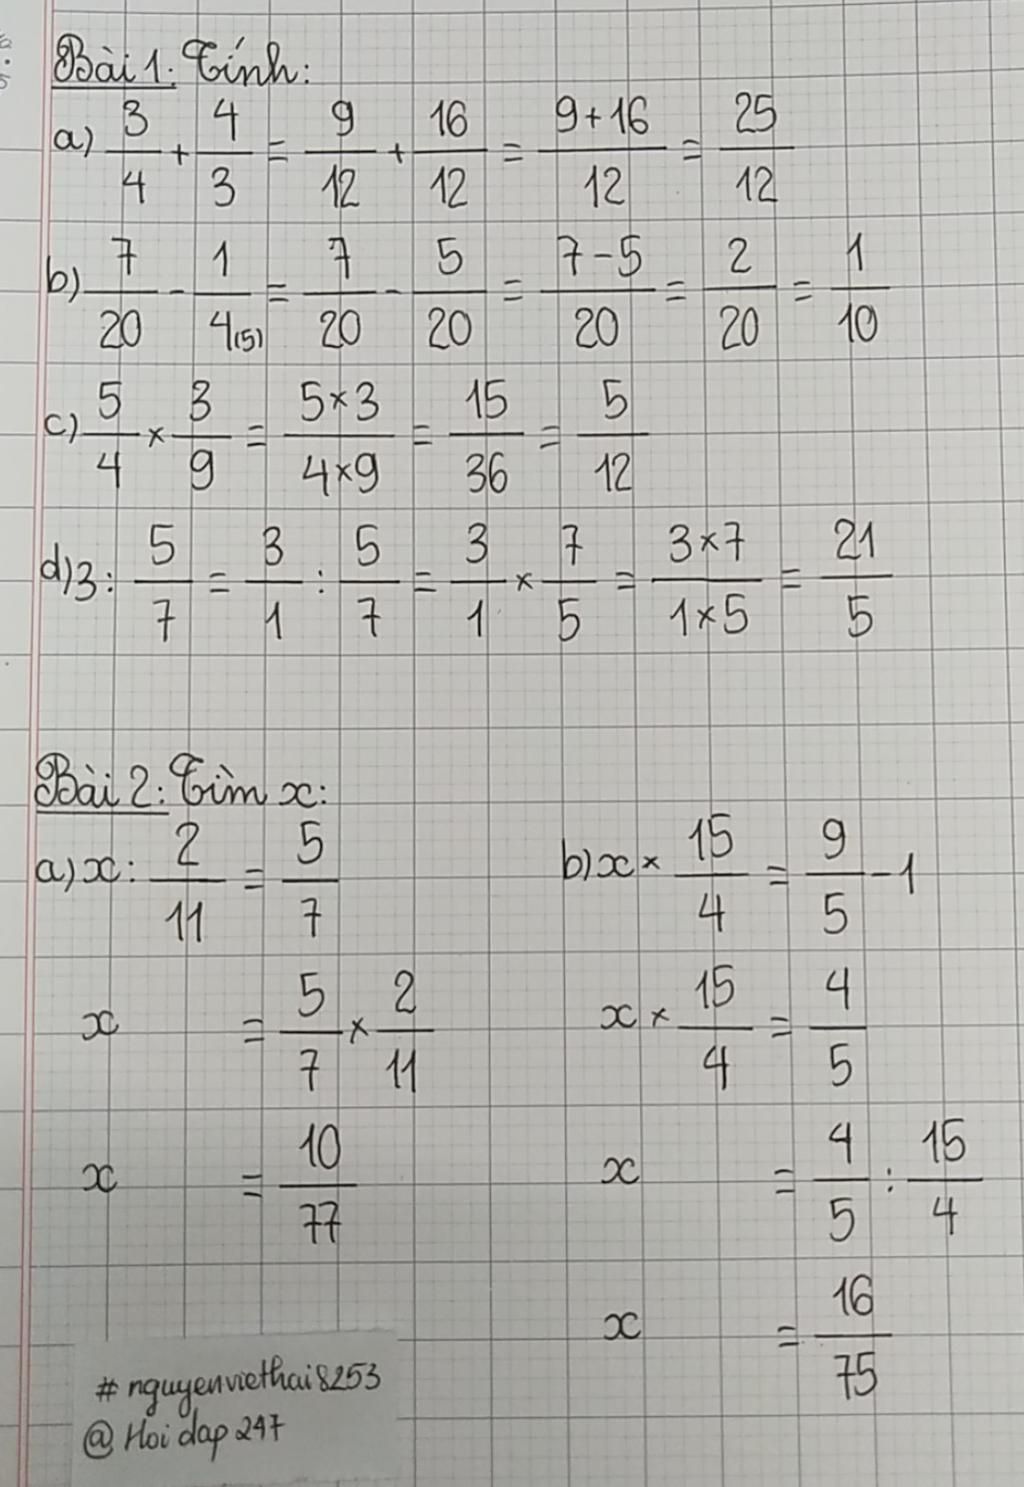 Bài 1: Tính:
a) 3/4 + 4/3 = 9/12 + 16/12 = 9+16/12 = 25/12
b) 7/20 - 1/4(5) = 7/20 - 5/20 = 7-5/20 = 2/20 = 1/10
c) 5/4 × 3/9 = 5×3/4×9 = 15/36 = 5/12
d) 3 : 5/7 = 3/1 : 5/7 = 3/1 × 7/5 = 3×7/1×5 = 21/5
Bài 2: Tìm x:
a) x : 2/11 = 5/7
x = 5/7 × 2/11
x = 10/77
b) x × 15/4 = 9/5 - 1
x × 15/4 = 4/5
x = 4/5 : 15/4
x = 16/75
# nguyenviethai8253
@ Hoi dap 247